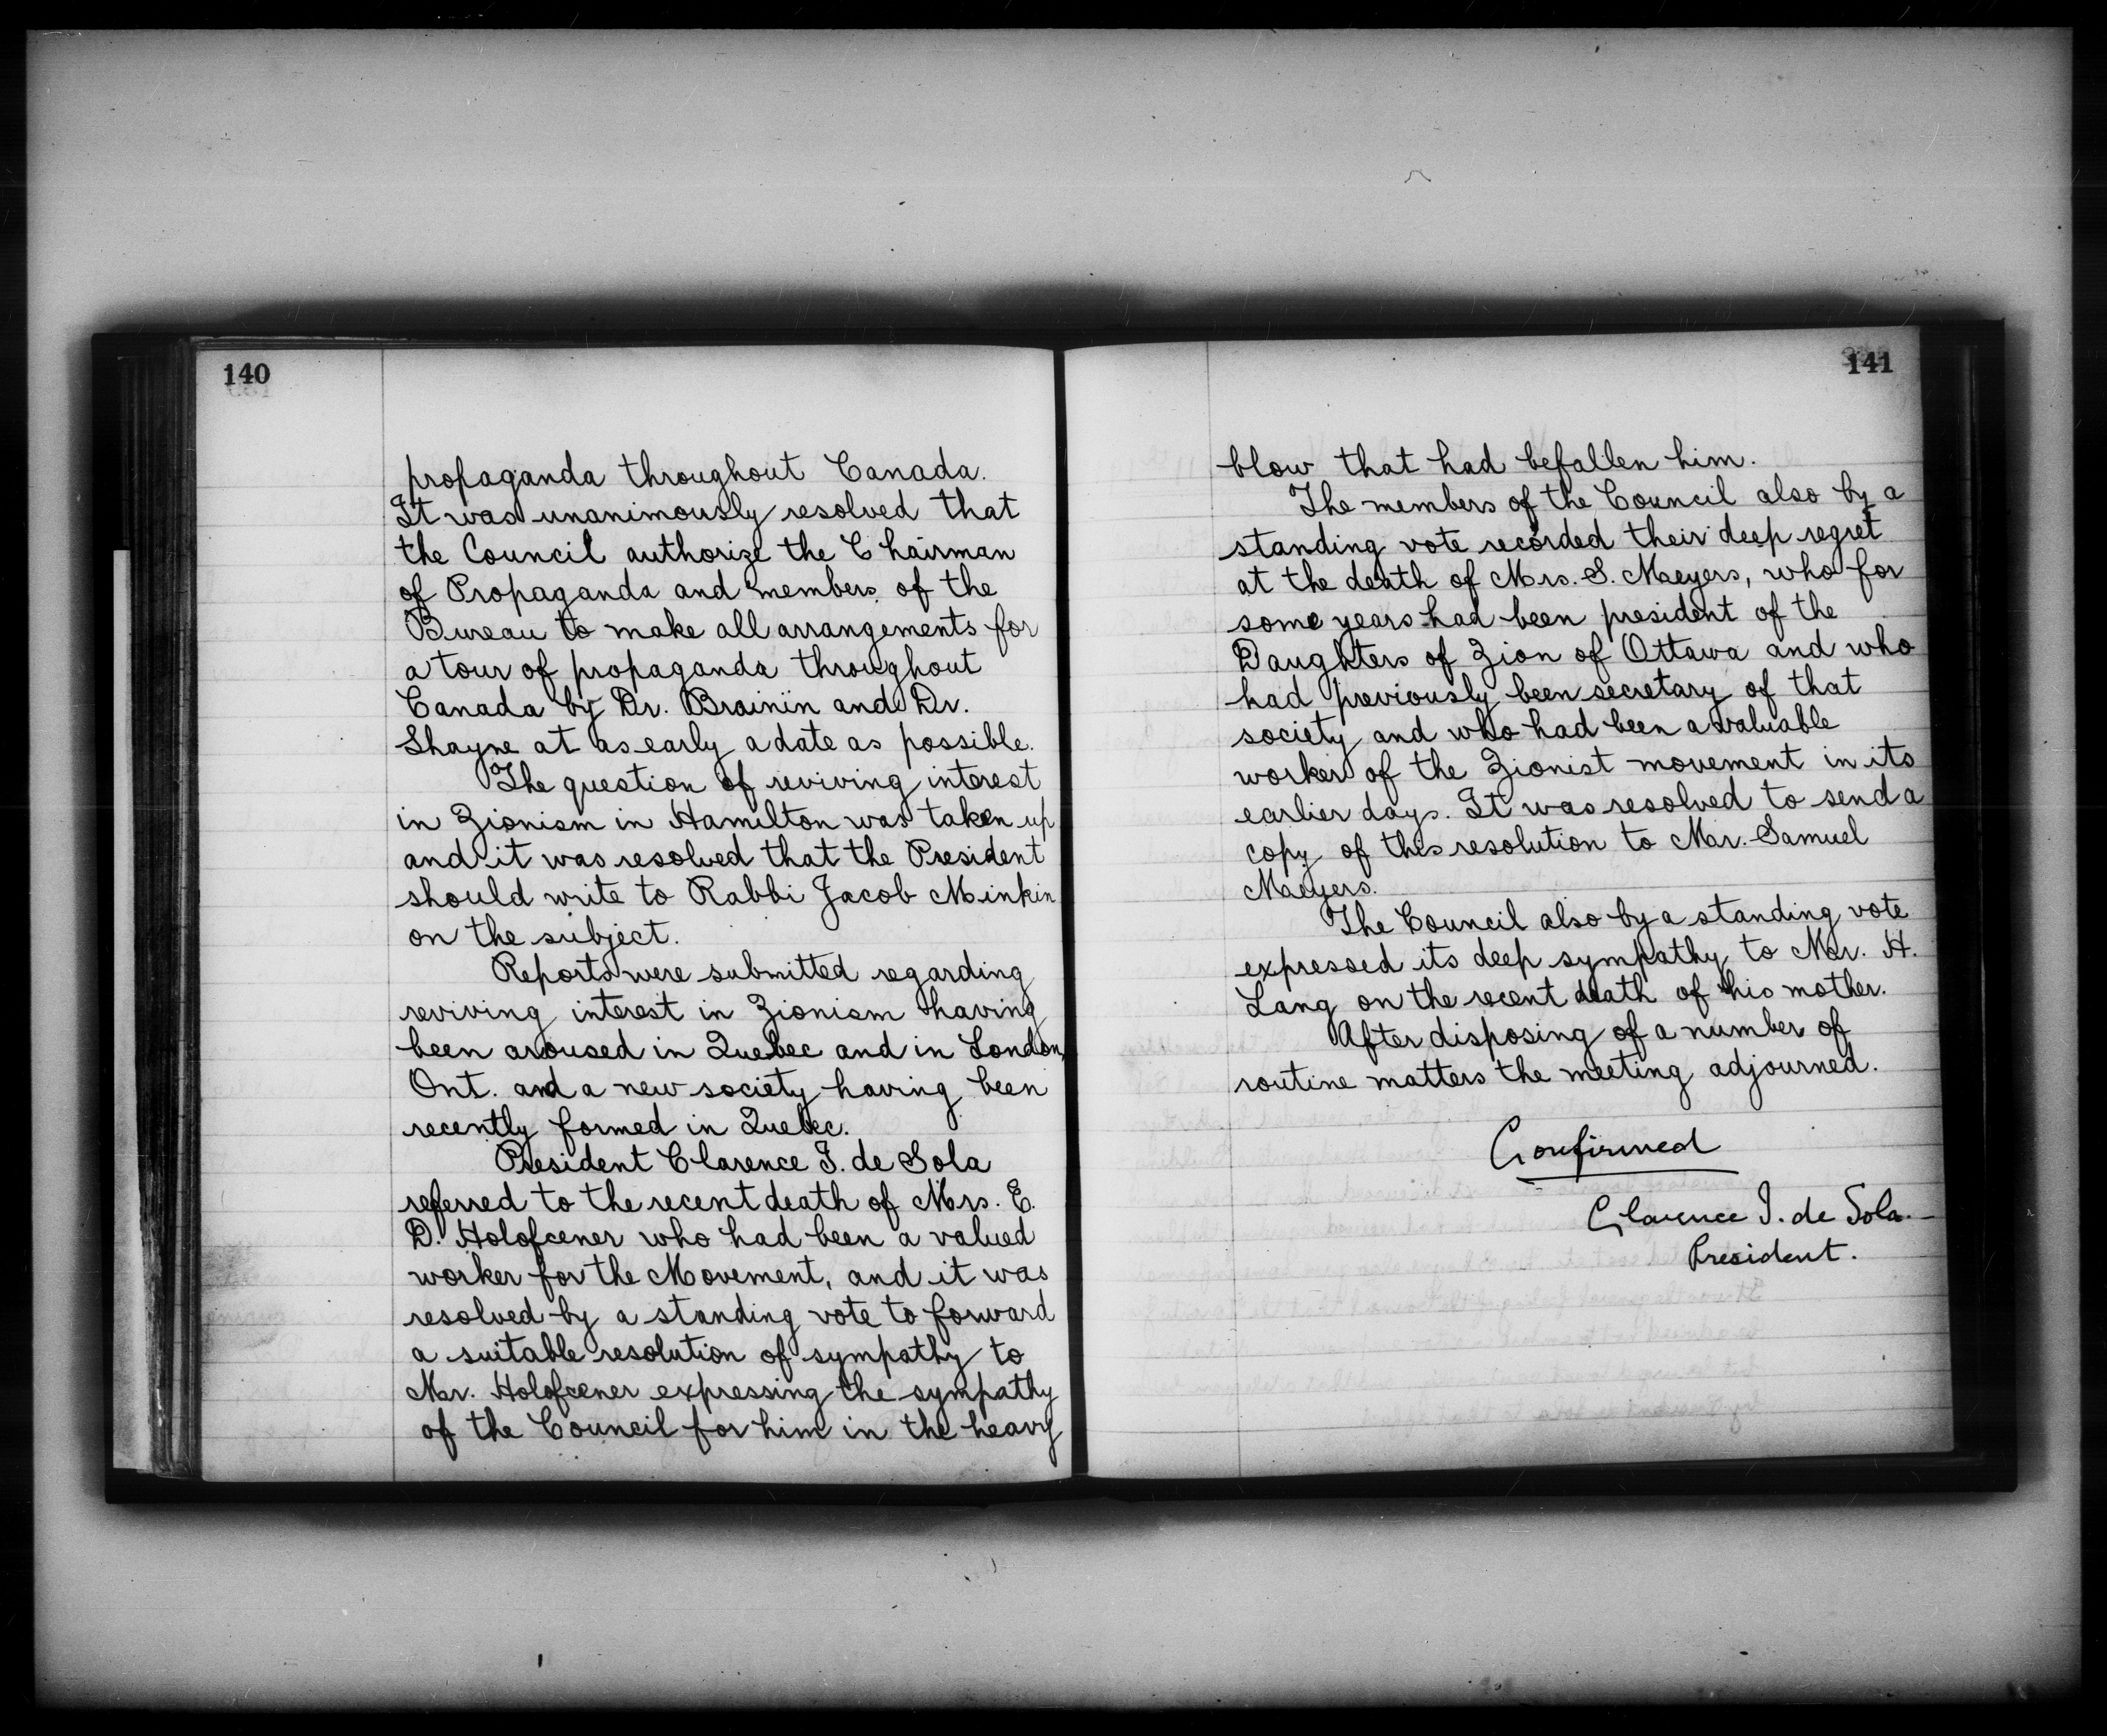 140
propaganda throughout Canada.
It was unanimously resolved that
the Council authorize the Chairman
of Propaganda and members of the
Bureau to make all arrangements for
a tour of propaganda throughout
Canada by Dr. Brainin and Dr.
Shayne at as early a date as possible.
The question of reviving interest
in Zionism in Hamilton was taken up
and it was resolved that the President
should write to Rabbi Jacob Minkin
on the subject.
Reports were submitted regarding
reviving interest in Zionism having
been aroused in Quebec and in London,
Ont. and a new society having been
recently formed in Quebec.
President Clarence I. de Sola
referred to the recent death of Mrs. E.
D. Holofcener who had been a valued
worker for the Movement, and it was
resolved by a standing vote to forward
a suitable resolution of sympathy to
Mr. Holofcener expressing the sympathy
of the Council for him in the heavy
141
blow that had befallen him.
The members of the Council also by a
standing vote recorded their deep regret
at the death of Mrs. S. Maeyers, who for
some years had been president of the
Daughters of Zion of Ottawa and who
had previously been secretary of that
society and who had been a valuable
worker of the Zionist movement in its
earlier days. It was resolved to send a
copy of this resolution to Mr. Samuel
Maeyers.
The Council also by a standing vote
expressed its deep sympathy to Mr. H.
Lang on the recent death of his mother.
After disposing of a number of
routine matters the meeting adjourned.
Confirmed
Clarence I. de Sola
President.